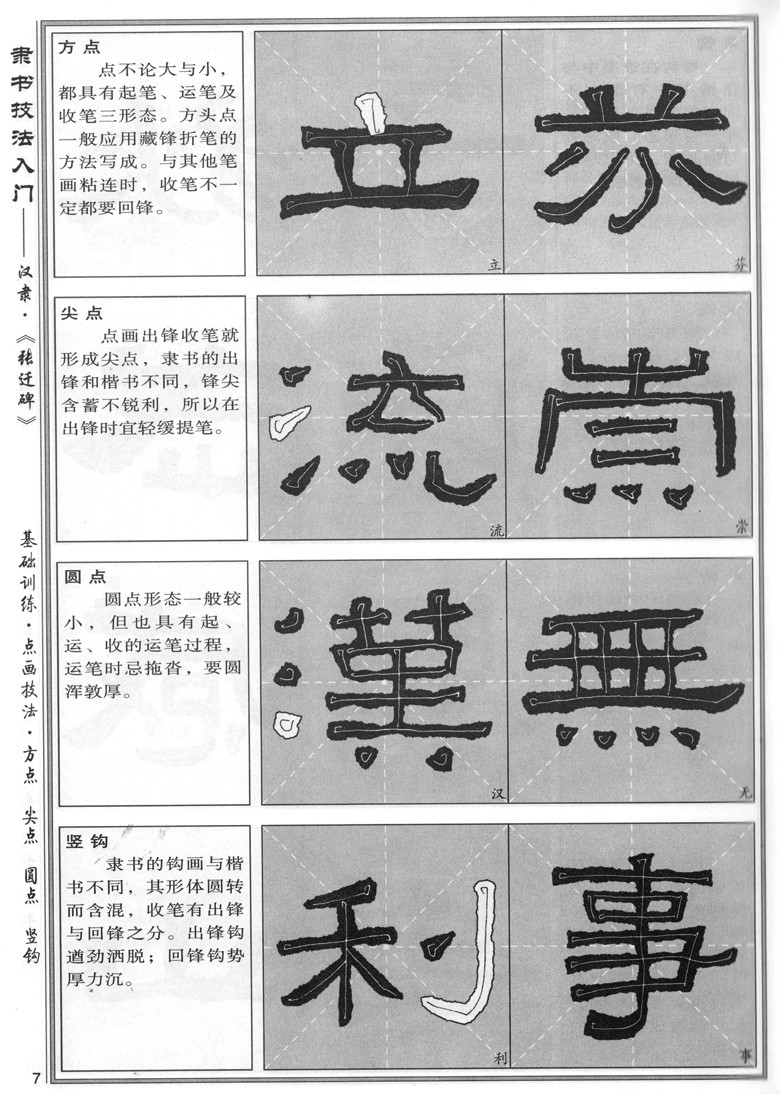 隶书技法入门——汉隶·《张迁碑》
基础训练·点画技法·方点 尖点 圆点 竖钩
方点
点不论大与小，
都具有起笔、运笔及
收笔三形态。方头点
一般应用藏锋折笔的
方法写成。与其他笔
画粘连时，收笔不一
定都要回锋。
立
芬
尖点
点画出锋收笔就
形成尖点，隶书的出
锋和楷书不同，锋尖
含蓄不锐利，所以在
出锋时宜轻缓提笔。
流
崇
圆点
圆点形态一般较
小，但也具有起、
运、收的运笔过程，
运笔时忌拖沓，要圆
浑敦厚。
汉
無
无
竖钩
隶书的钩画与楷
书不同，其形体圆转
而含混，收笔有出锋
与回锋之分。出锋钩
遒劲洒脱；回锋钩势
厚力沉。
利
事
7